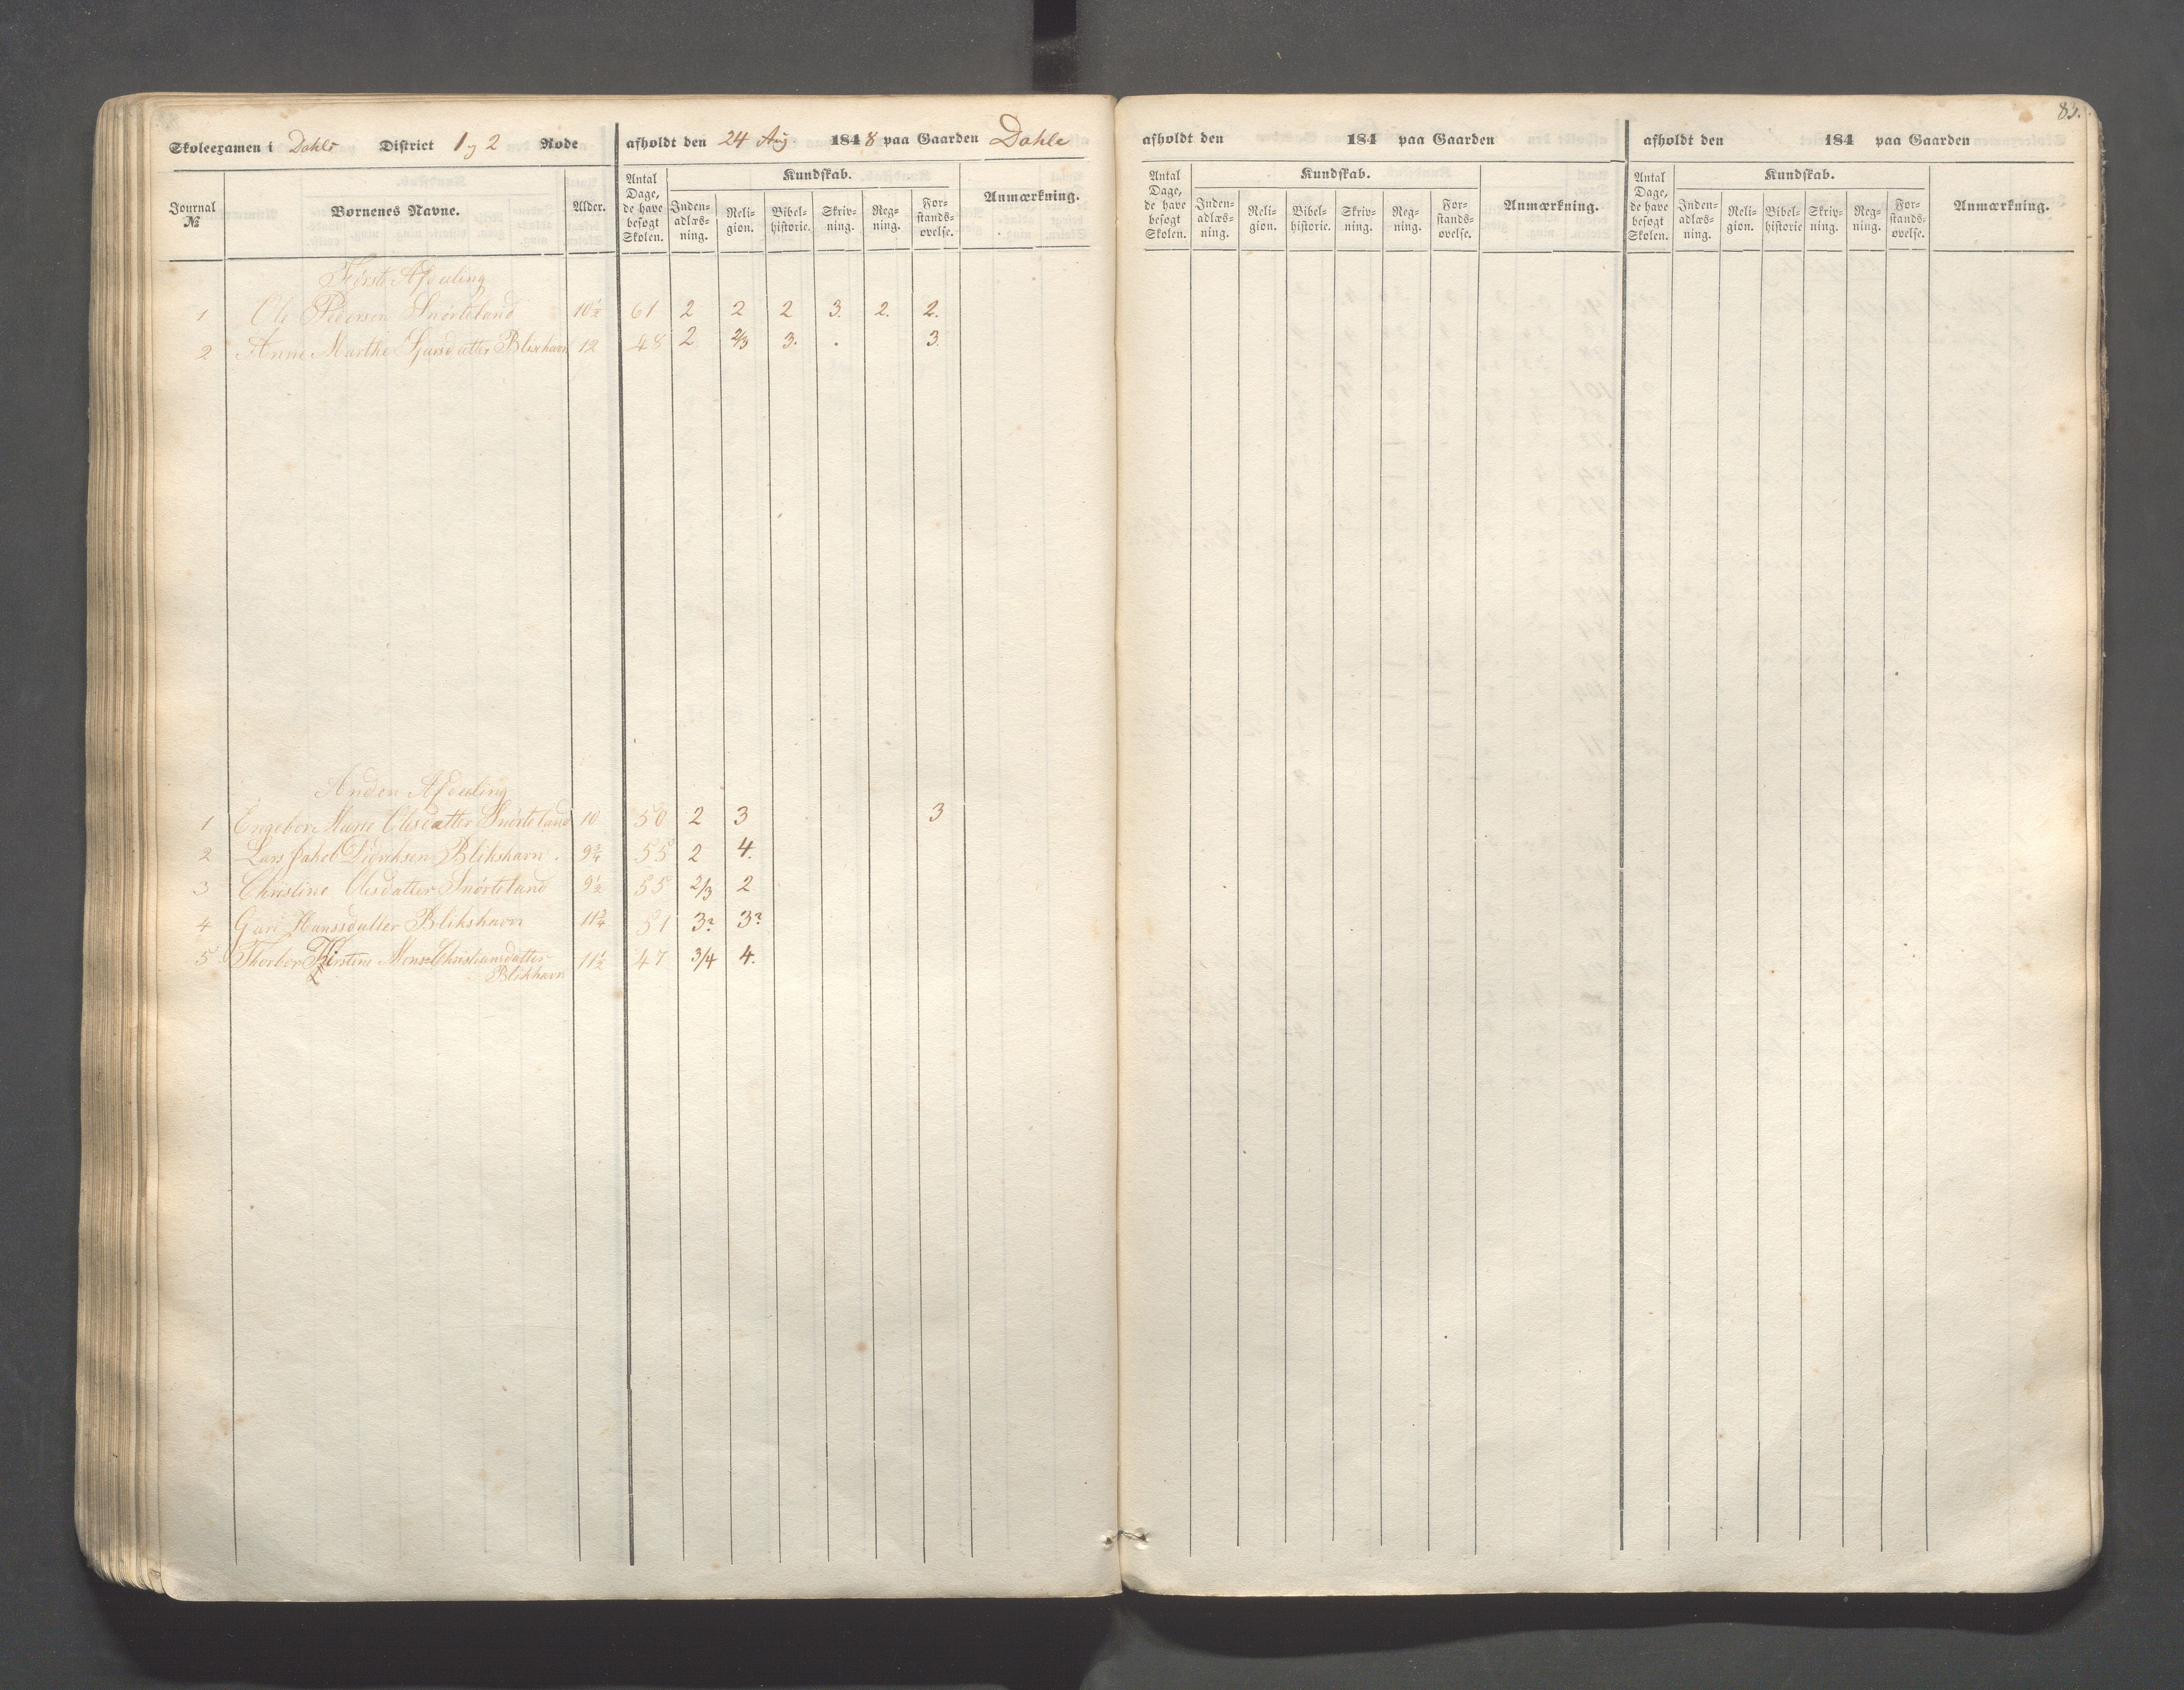 83.
Skoleexamen i Dahle District 1 og 2 Rode afholdt den 24 Aug. 1848 paa Gaarden Dahle
Journal № Børnenes Navne. Alder. Antal Dage, de have besøgt Skolen. Kundskab. Anmærkning.
Indenadlæs-ning. Reli-gion. Bibel-historie. Skriv-ning. Reg-ning. For-stands-øvelse.
Første Afdeling
1 Ole Pedersen Snørteland 10½ 61 2 2 2 3. 2. 2.
2 Anne Marthe 12 48 2 2/3 3. . 3.
Anden Afdeling
1 Engebor Marie Olesdatter Snørteland 10 50 2 3 3
2 Lars Jakob Didriksen Blikshavn. 9¾ 55 2 4.
3 Christine Olesdatter Snørteland 9½ 55 2/3 2
4 Guri Hansdatter Blikshavn 11¾ 51 3? 3?
5 Thorbor Kirstine Christiansdatter 11½ 47 3/4 4.
Blikhavn
afholdt den 184 paa Gaarden
Antal Dage, de have besøgt Skolen. Kundskab. Anmærkning.
Inden-adlæs-ning. Reli-gion. Bibel-historie. Skriv-ning. Reg-ning. For-stands-øvelse.
afholdt den 184 paa Gaarden
Antal Dage, de have besøgt Skolen. Kundskab. Anmærkning.
Inden-adlæs-ning. Reli-gion. Bibel-historie Skriv-ning. Reg-ning. For-stands-øvelse.